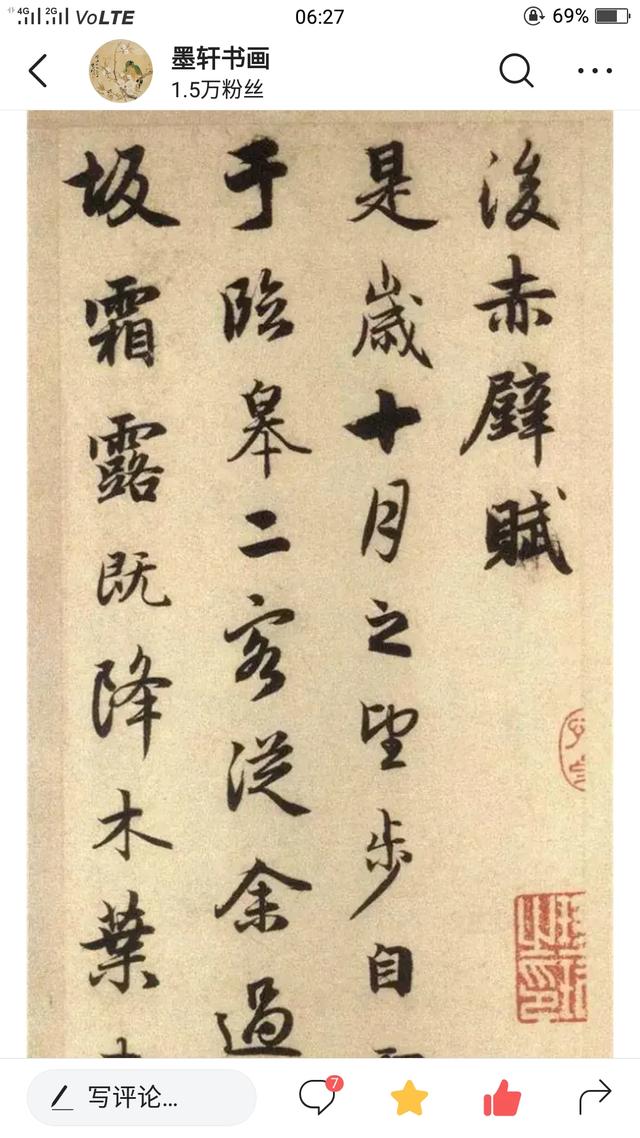 4G 2G VoLTE 06:27 69%
墨轩书画
1.5万粉丝
後赤壁賦
是歲十月之望步自
于臨皋二客從余過
坂霜露既降木葉
写评论...
7